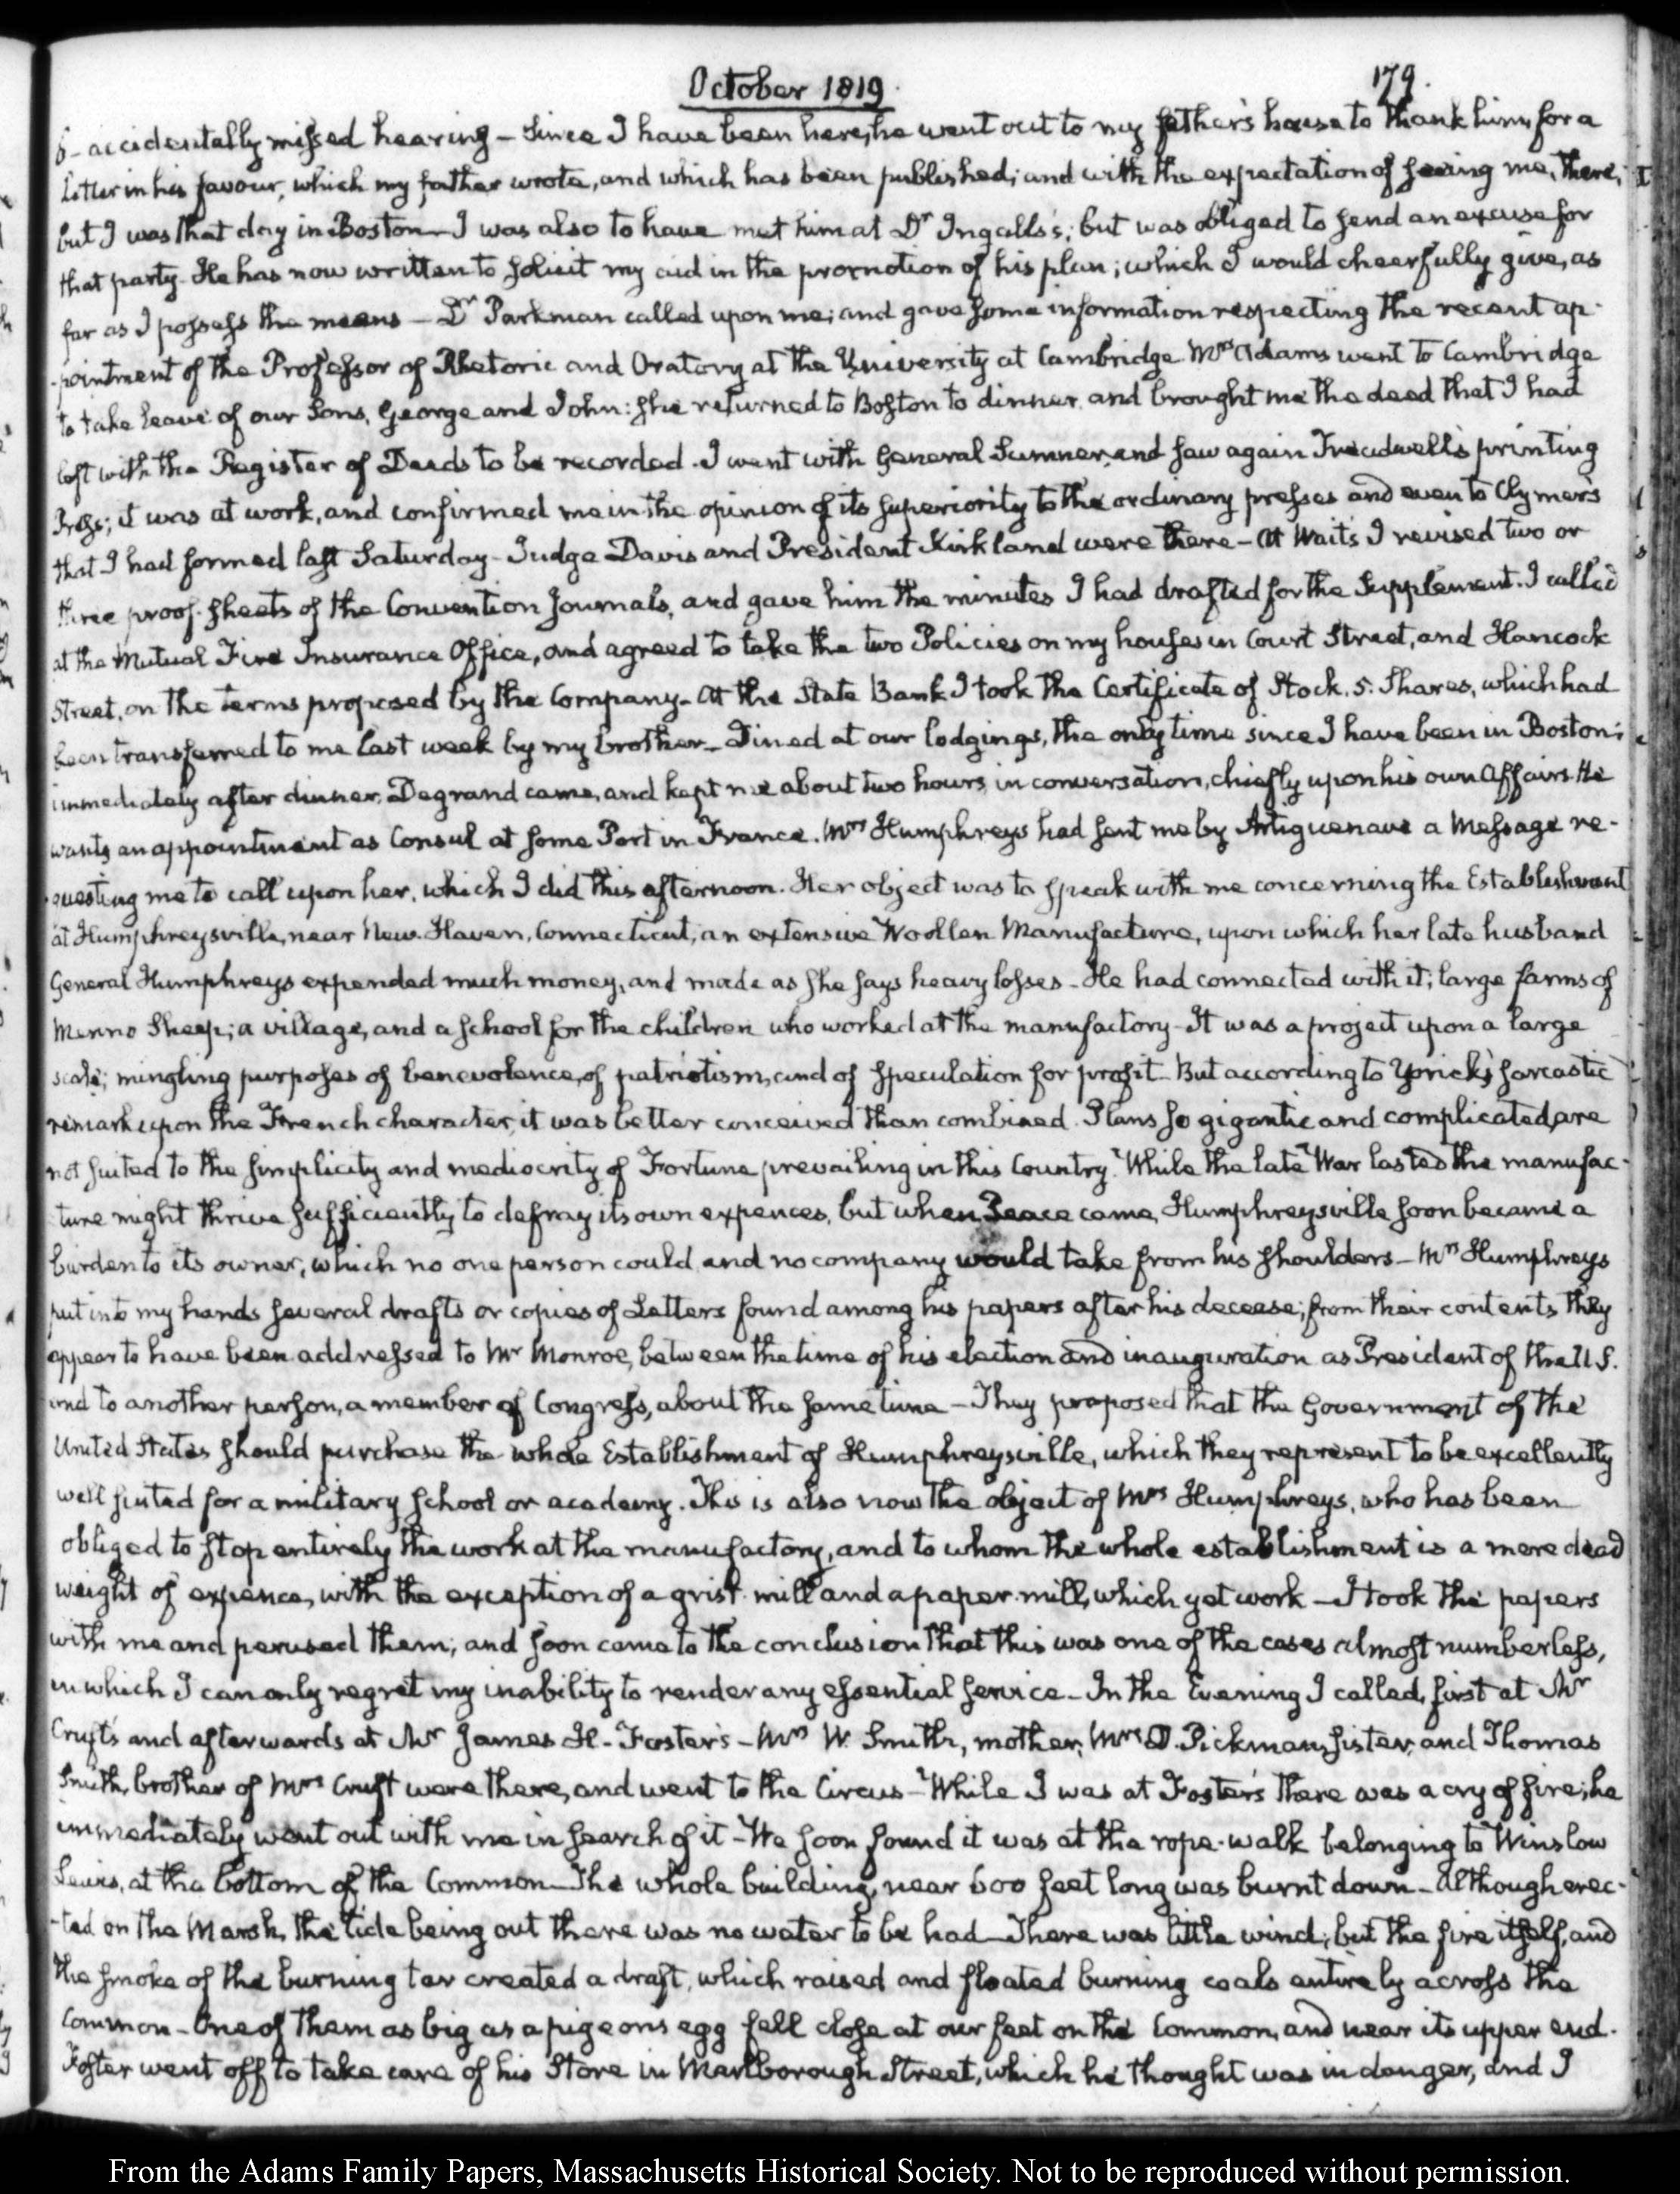 October 1819.
179.
6- accidentally missed hearing – Since I have been here, he went out to my father's house to thank him for a
letter in his favour, which my father wrote, and which has been published; and with the expectation of seeing me, there,
but I was that day in Boston – I was also to have met him at Dr Ingalls's; but was obliged to send an excuse for
that party. He has now written to solicit my aid in the promotion of his plan; which I would cheerfully give, as
far as I possess the means – Dr Parkman called upon me; and gave some information respecting the recent ap-
-pointment of the Professor of Rhetoric and Oratory at the University at Cambridge Mrs Adams went to Cambridge
to take leave of our Sons, George and John: she returned to Boston to dinner, and brought me the deed that I had
left with the Register of Deeds to be recorded. I went with General Sumner, and saw again Treadwell's printing
Press; it was at work, and confirmed me in the opinion of its superiority to the ordinary presses and even to Clymer's
that I had formed last Saturday – Judge Davis and President Kirkland were there – At Wait's I revised two or
three proof-sheets of the Convention Journals, and gave him the minutes I had drafted for the Supplement. I called
at the Mutual Fire Insurance Office, and agreed to take the two Policies on my houses in Court Street, and Hancock
Street, on the terms proposed by the Company – At the State Bank I took the Certificate of Stock. 5. Shares, which had
been transferred to me last week by my brother – Dined at our lodgings, the only time since I have been in Boston;
immediately after dinner, Degrand came, and kept me about two hours in conversation, chiefly upon his own Affairs. He
wants an appointment as Consul at some Port in France. Mrs Humphreys had sent me by Artiguenave a Message re-
-questing me to call upon her, which I did this afternoon. Her object was to speak with me concerning the Establishment
at Humphreysville, near New-Haven, Connecticut; an extensive Woollen Manufacture, upon which her late husband
General Humphreys expended much money, and made as she says heavy losses – He had connected with it; large farms of
Merino Sheep; a village, and a school for the children who worked at the manufactory – It was a project upon a large
scale; mingling purposes of benevolence, of patriotism, and of speculation for profit – But according to Yorick's sarcastic
remark upon the French character, it was better conceived than combined. Plans so gigantic and complicated, are
not suited to the simplicity and mediocrity of Fortune prevailing in this Country. While the late War lasted the manufac-
ture might thrive sufficiently to defray its own expences, but when Peace came, Humphreysville soon became a
burden to its owner, which no one person could, and no company would take from his shoulders – Mrs Humphreys
put into my hands several drafts or copies of Letters found among his papers after his decease; from their contents they
appear to have been addressed to Mr Monroe, between the time of his election and inauguration as President of the U.S.
and to another person, a member of Congress, about the same time – They proposed that the Government of the
United States should purchase the whole Establishment of Humphreysville, which they represent to be excellently
well suited for a military school or academy. This is also now the object of Mrs Humphreys, who has been
obliged to stop entirely the work at the manufactory, and to whom the whole establishment is a mere dead
weight of expence, with the exception of a grist-mill and a paper-mill, which yet work – I took the papers
with me and perused them; and soon came to the conclusion that this was one of the cases almost numberless,
in which I can only regret my inability to render any essential service – In the Evening I called, first at Mr
Cruft's and afterwards at Mr James H. Foster's – Mrs W. Smith, mother, Mrs D. Pickman, sister, and Thomas
Smith, brother of Mrs Cruft were there, and went to the Circus – While I was at Foster's there was a cry of fire; he
immediately went out with me in search of it – We soon found it was at the rope-walk belonging to Winslow
Lewis, at the bottom of the Common – The whole building, near 600 feet long was burnt down – Although erec-
-ted on the Marsh, the tide being out there was no water to be had – There was little wind; but the fire itself, and
the smoke of the burning tar created a draft, which raised and floated burning coals entirely across the
Common – One of them as big as a pigeons egg fell close at our feet on the Common, and near its upper end.
Foster went off to take care of his Store in Marlborough Street, which he thought was in danger, and I
From the Adams Family Papers, Massachusetts Historical Society. Not to be reproduced without permission.